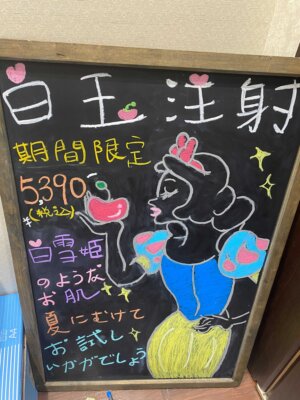 白玉注射
期間限定
5390
(税込)
白雪姫
のような
お肌
夏にむけて
お試し
いかがでしょう